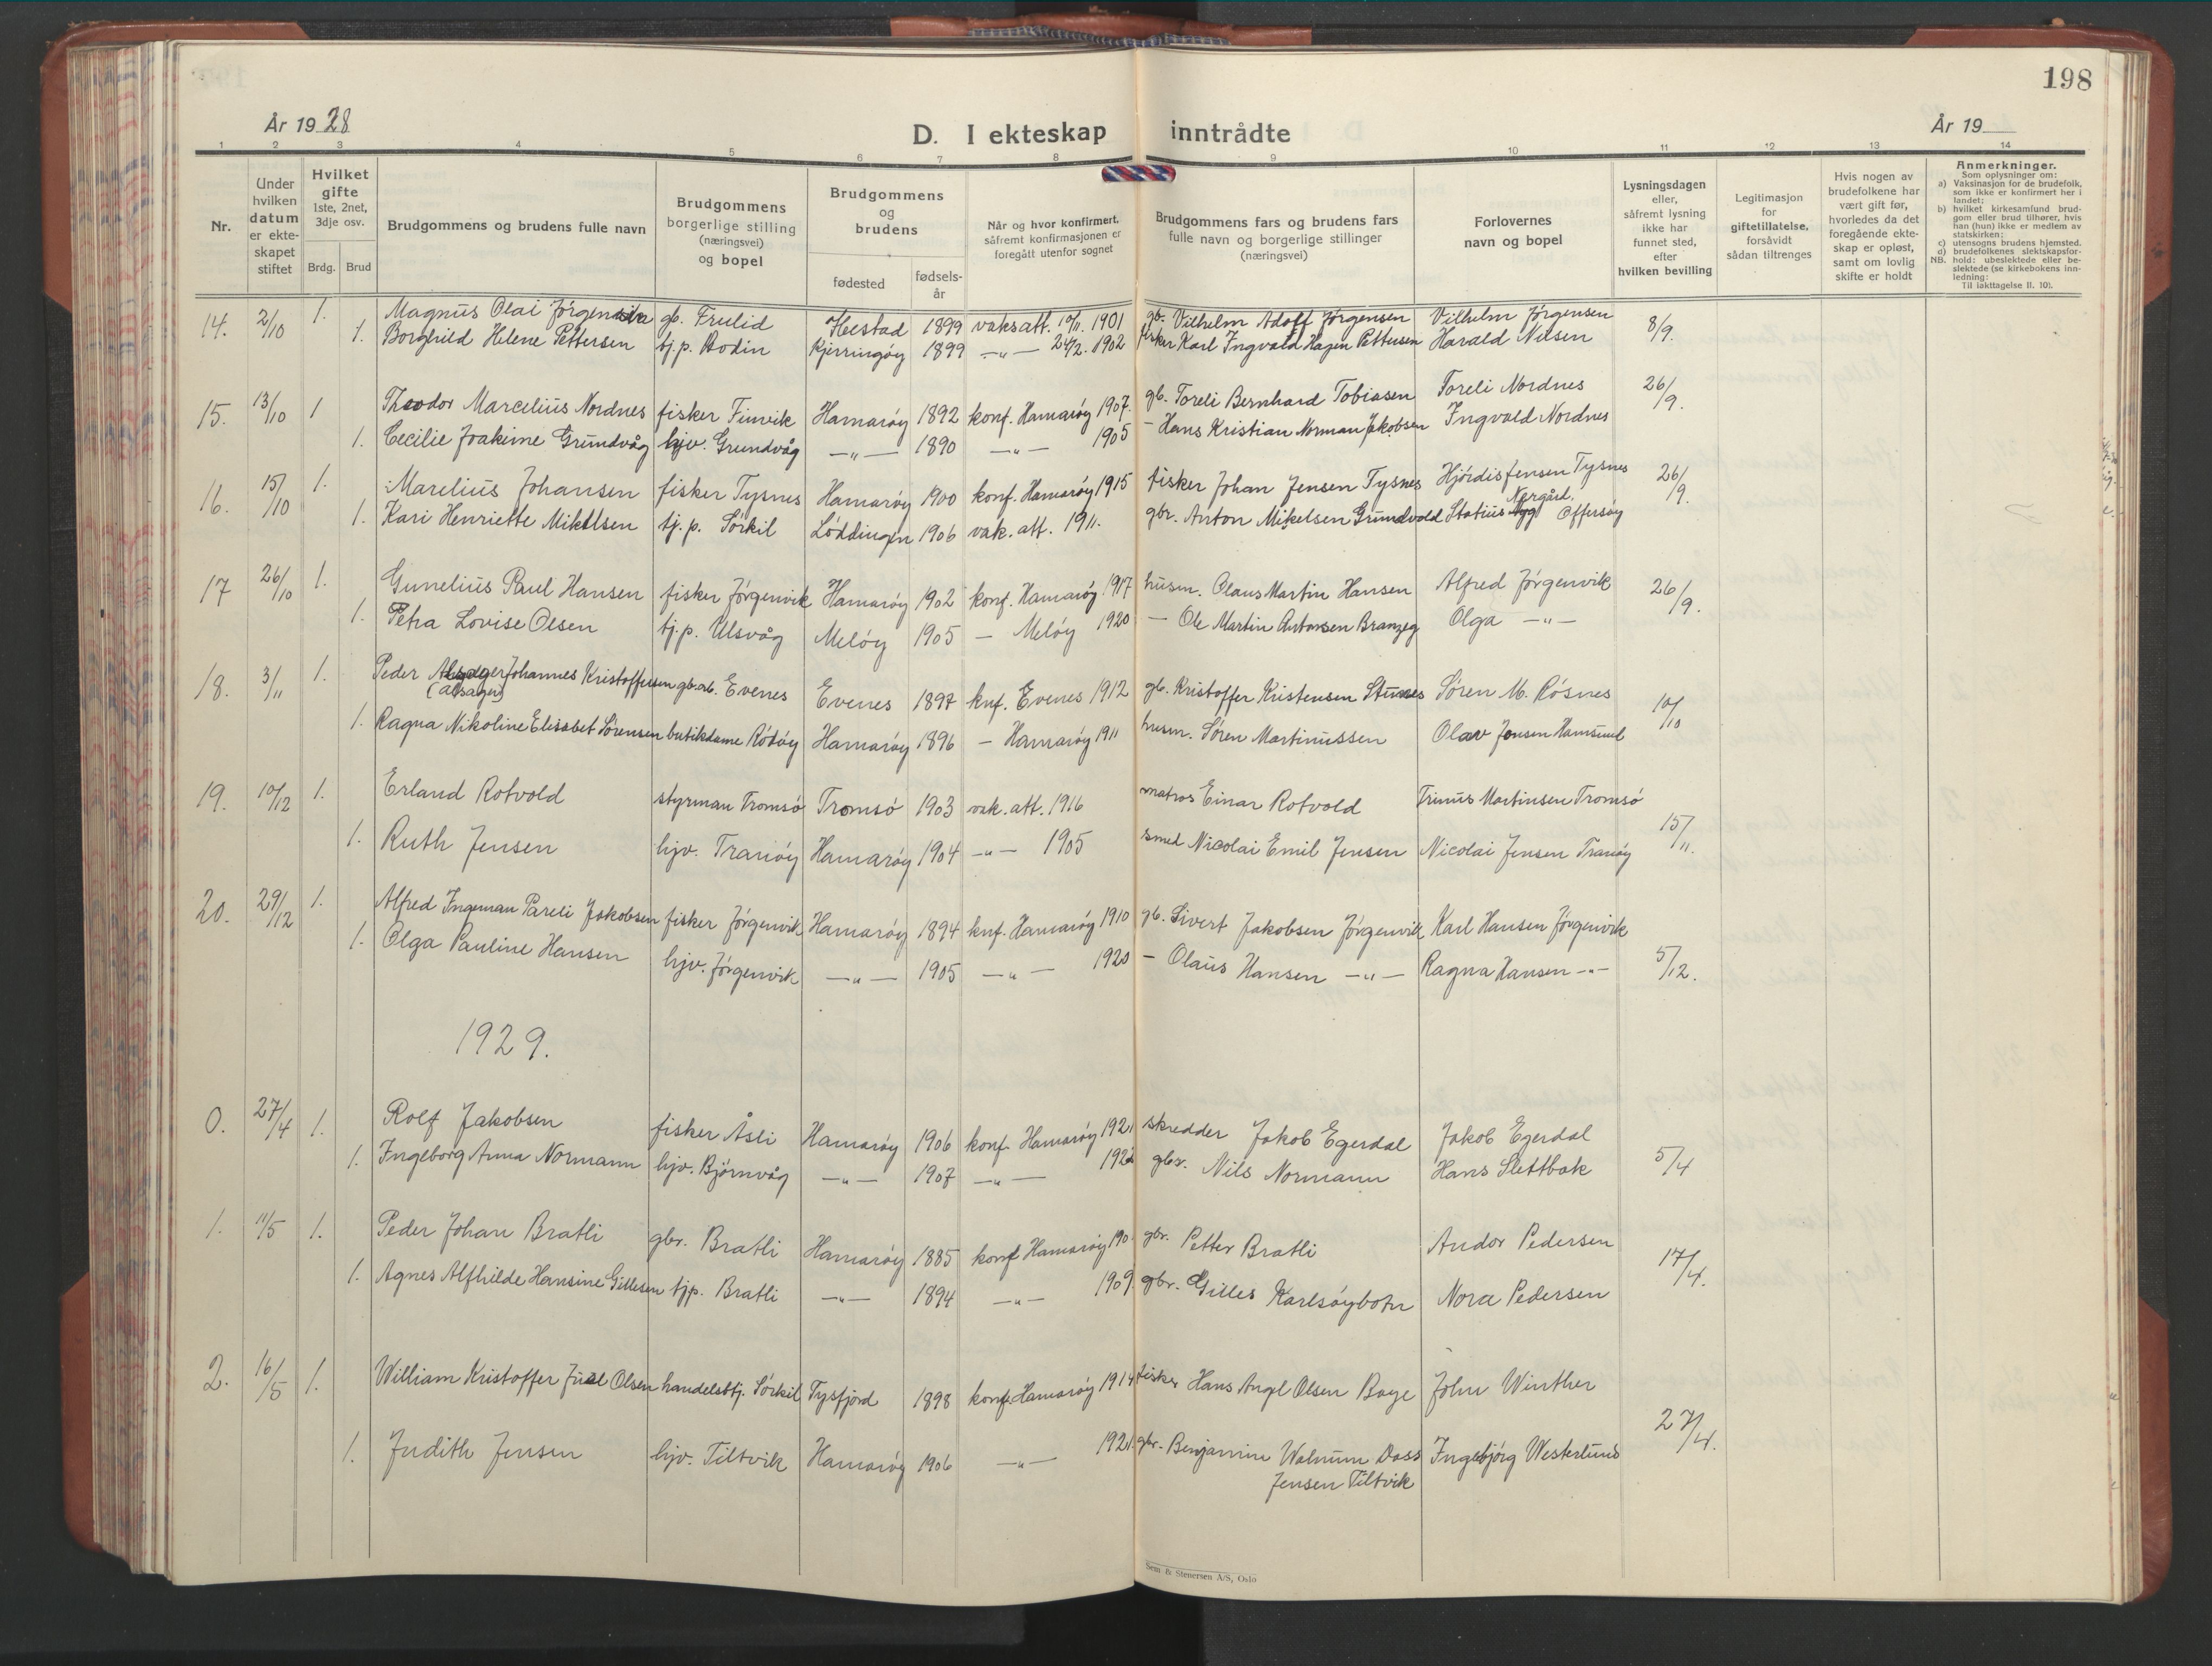 198
År 19 28
D. I ekteskap inntrådte
År 19
1 2 3 4 5 6 7 8 9 10 11 12 13 14
Nr.
Under hvilken datum er ekteskapet stiftet
Hvilket gifte 1ste, 2net, 3dje osv.
Brdg. Brud
Brudgommens og brudens fulle navn
Brudgommens borgerlige stilling (næringsvei) og bopel
Brudgommens og brudens
fødested
fødselsår
Når og hvor konfirmert, såfremt konfirmasjonen er foregått utenfor sognet
Brudgommens fars og brudens fars fulle navn og borgerlige stillinger (næringsvei)
Forlovernes navn og bopel
Lysningsdagen eller, såfremt lysning ikke har funnet sted, efter hvilken bevilling
Legitimasjon for giftetillatelse, forsåvidt sådan tiltrenges
Hvis nogen av brudefolkene har vært gift før, hvorledes da det foregående ekteskap er opløst, samt om lovlig skifte er holdt
Anmerkninger.
Som oplysninger om:
a) Vaksinasjon for de brudefolk, som ikke er konfirmert her i landet;
b) hvilket kirkesamfund brudgom eller brud tilhører, hvis han (hun) ikke er medlem av statskirken;
c) utensogns brudens hjemsted.
d) brudefolkenes slektskapsforhold: ubeslektede eller beslektede (se kirkebokens innledning:
NB.
Til iakttagelse II. 10).
14. 2/10 1. Magnus Olai Jørgensen gb. Frulid Hestad 1899 vaksatt. 1901 gb. Vilhelm Adolf Jørgensen Vilhelm Jørgensen 8/9.
1. Borghild Helene Pettersen tj.p. Bodin Kjerringøy 1899 —"— 1902 fisker Karl Ingvald Hagen Pettersen Harald Nilsen
15. 13/10 1 Theodor Marcelius Nordnes fisker Finvik Hamarøy 1892 konf. Hamarøy 1907. gb. Toreli Bernhard Tobiasen Toreli Nordnes 26/9.
1. Cecilie Joakime Grundvåg hjv. Grundvåg —"— 1890 —"— 1905 — Hans Kristian Norman Jakobsen Ingvald Nordnes
16. 15/10 1. Marelius Johansen fisker Tysnes Hamarøy 1900 konf. Hamarøy 1915 fisker Johan Jensen Tysnes Hjørdis Jensen Tysnes 26/9.
1. Kari Henriette Mikelsen tj.p. Sørkil Løddingen 1906 vak. att. 1911. gbr. Anton Mikelsen Grundvold Statius Norgård. Offersøy
17 26/10 1. Gunelius Paul Hansen fisker Jørgenvik Hamarøy 1902 konf. Hamarøy 1917 husm. Olaus Martin Hansen Alfred Jørgenvik 26/9.
1. Petra Lovise Olsen tj.p. Ulsvåg Meløy 1905 — Meløy 1920 — Ole Martin Antonsen Branzeg Olga —"—
18. 3/11 1. Peder Johannes Kristoffersen gb.arb. Evenes Evenes 1897 knf. Evenes 1912 gb. Kristoffer Kristensen Søren M. Røsnes 10/10
(alsager)
1. Ragna Nikoline Elisabet Sørensen butikdame Rotøy Hamarøy 1896 — Hamarøy 1911 husm. Søren Martinussen Olav Jensen Hamsund
19. 10/12 1. Erland Rotvold styrman Tromsø Tromsø 1903 vak. att. 1916 matros Einar Rotvold Trinus Martinsen Tromsø 15/11.
1. Ruth Jensen hjv. Tranøy Hamarøy 1904 —"— 1905 smed Nicolai Emil Jensen Nicolai Jensen Tranøy
20. 29/12 1. Alfred Ingeman Pareli Jakobsen fisker Jørgenvik Hamarøy 1894 knf. Hamarøy 1910 gb. Sivert Jakobsen Jørgenvik Karl Hansen Jørgenvik
1. Olga Pauline Hansen hjv. Jørgenvik —"— 1905 —"— 1920 — Olaus Hansen —"— Ragna Hansen —"— 5/12.
1929.
0. 27/4 1. Rolf Jakobsen fisker Åsli Hamarøy 1906 konf. Hamarøy 1921 skredder Jakob Egerdal Jakob Egerdal 5/4
1. Ingeborg Anna Normann hjv. Bjørnvåg —"— 1907 —"— gbr. Nils Normann Hans Slettbak
1. 11/5 1. Peder Johan Bratli gbr. Bratli Hamarøy 1885 konf Hamarøy 190 gbr. Petter Bratli Andor Pedersen 17/4.
1. Agnes Alfhilde Hansine Gillesen tjp. Bratli —"— 1894 —"— 1909 gbr. Gilles Karlsøybotn Nora Pedersen
2. 16/5 1. William Kristoffer Juel Olsen handelsbtj. Sørkil Tysfjord 1898 konf. Hamarøy 1914 fisker Hans Angl Olsen Boye John Winther 27/4.
1. Judith Jensen hjv. Tiltvik Hamarøy 1906 —"— 1921. gbr. Benjamin Walnum Dass Ingebjørg Westerlund
Jensen Tiltvik
Sem & Stenersen A/S, Oslo